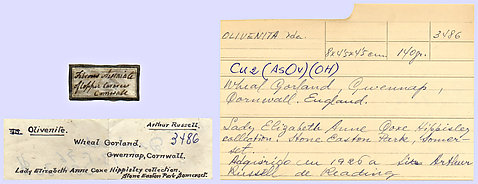 Arseniate
of Copper
Cornwall
Olivenite.
Arthur Russell
3486
Wheal Gorland,
Gwennap, Cornwall.
Lady Elizabeth Anne Coxe Hippisley collection.
Stone Easton Park, Somerset.
OLIVENITA
3486
8x45x45mm.
140gr.
Cu2(AsO4)(OH)
Wheal Gorland, Gwennap,
Cornwall, England.
Lady Elizabeth Anne Coxe Hippisley
collection. Stone Easton Park, Somer-
set.
Adquirido en 1926 a Sir Arthur
Russell de Reading